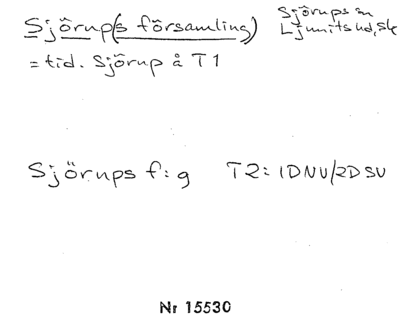 Sjörup(s församling)
Sjörups sn
Ljunits hd, Sk
= tid. Sjörup å T1
Sjörups f:g T2: 1DNV/2DSV
Nr 15530